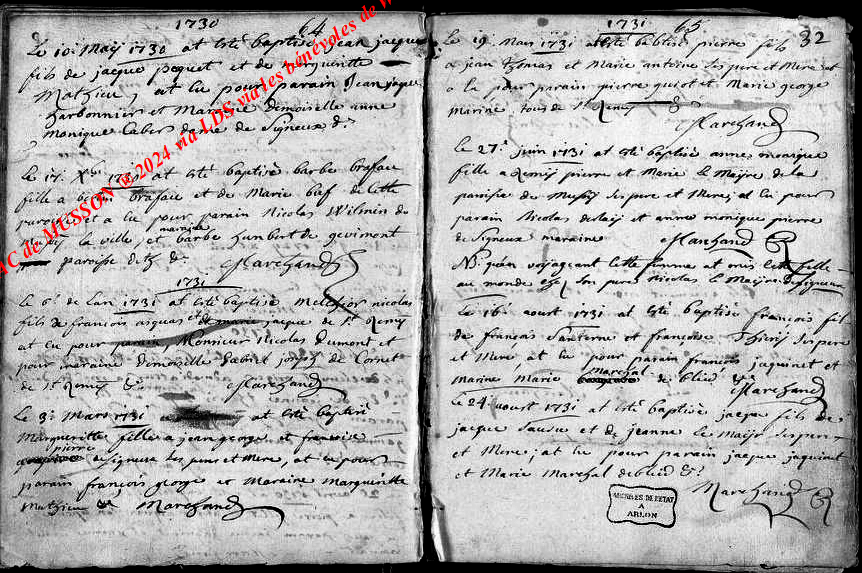 1730
64
Le 10: Maij 1730 at esté baptisé jean jacque
fils de jacque pequet et de Margueritte
Mathieu, at eu pour parain Jean jaque
harbonnier et Maraine demoiselle anne
monique dame de Signeux &.
Le 17. Xbre 1730 at esté baptisé barbe
fille a et de Marie de cette
paroisse et a eu pour parain Nicolas Wilmin de
la ville, et maraine barbe humbert de gevimont
paroisse &.
Marchand
1731
Le 6e de Lan 1731 at esté baptisé Melchior nicolas
fils de françois et jacque de St Remy
at eu pour parain Monsieur Nicolas Dumont et
pour maraine demoiselle joseph de Cornet
de St Remy &.
Marchand
Le 3: Mars 1731 at esté baptisé
Margueritte fille a jean george et françoise
pierre de Signeux ses pere et Mere, at eu pour
parain françois george et Maraine Margueritte
Mathieu & Marchand
1731
65
32
Le 19. Mars 1731 at esté baptisé pierre fils
a jean thomas et Marie antoine ses pere et Mere at
a eu pour parain pierre guiot et Marie george
Marine, tous de St Remy &
Marchand
Le 27: juin 1731 at esté baptisé anne monique
fille a Remy pierre et Marie le Maire de la
paroisse de ses pere et Mere, at eu pour
parain Nicolas et anne monique pierre
de Signeux maraine Marchand
NB quen voyageant cette femme at mis cette fille
au monde son pere Nicolas le de Signeux
Le 16: aoust 1731 at esté baptisé françois fils
de françois et françoise Thiry ses pere
et Mere, at eu pour parain françois jaquinet et
Marine Marie Marchal de bleid &
Marchand
Le 24 aoust 1731 at esté baptisé jacque fils de
jacque et de jeanne le ses pere
et Mere, at eu pour parain jacque jaquinet
et Marie Marchal de bleid &.
Marchand
ARCHIVES DE L'ETAT
A
ARLON
AC de MUSSON @ 2024 via LDS via les bénévoles de